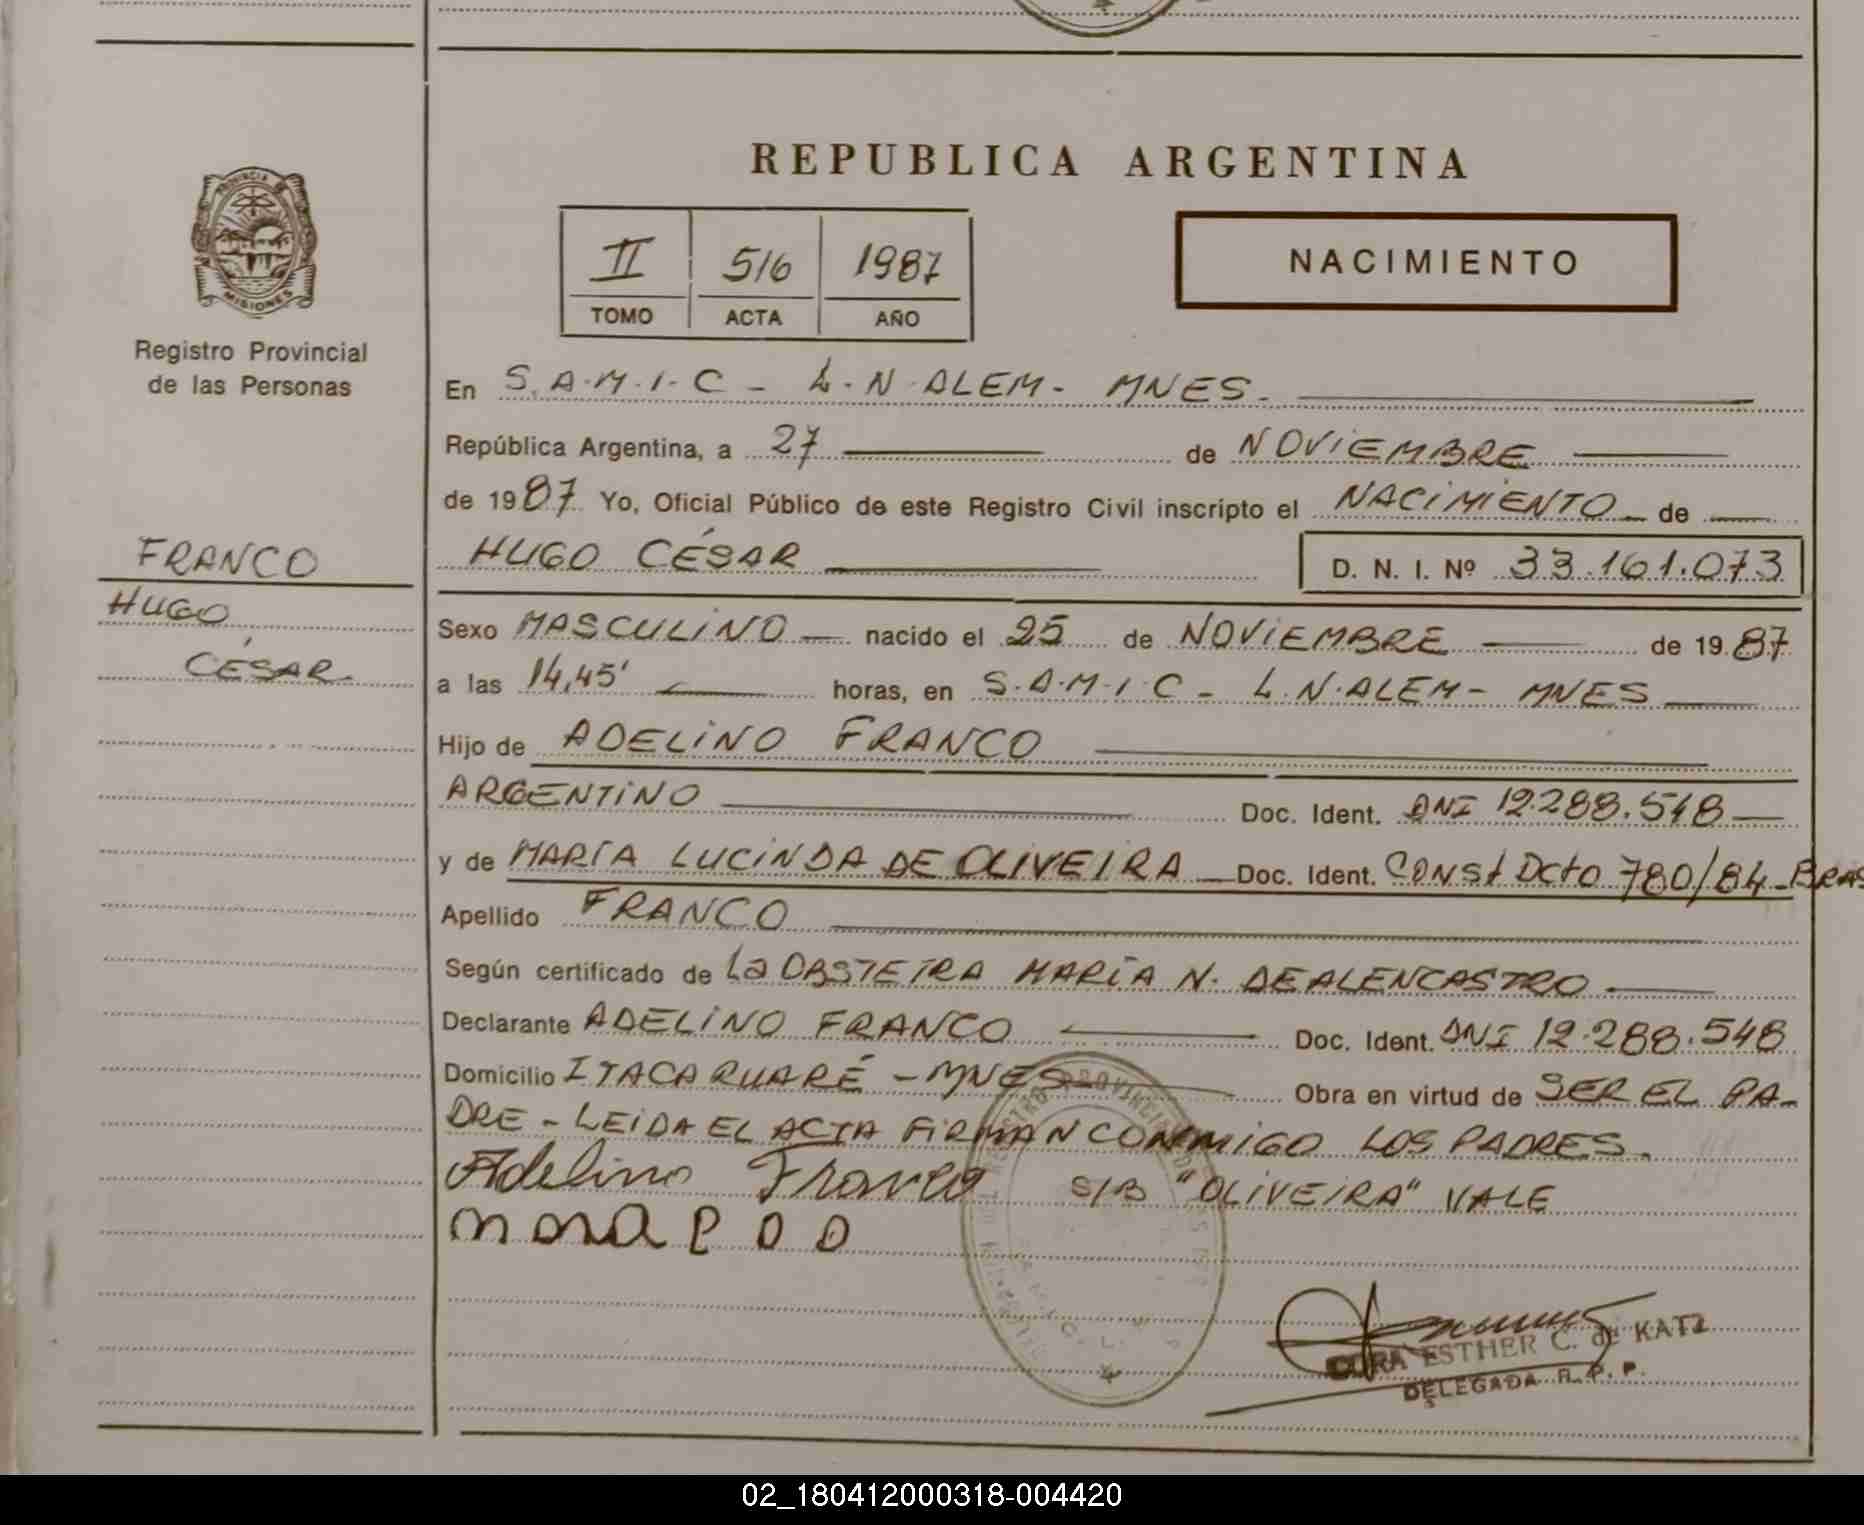 PROVINCIA DE
MISIONES
Registro Provincial
de las Personas
FRANCO
HUGO
CÉSAR
REPUBLICA ARGENTINA
II 516 1987
TOMO ACTA AÑO
NACIMIENTO
En S.A.M.I.C - L.N.ALEM - MNES.
República Argentina, a 27 de NOVIEMBRE
de 1987 Yo, Oficial Público de este Registro Civil inscripto el NACIMIENTO de
HUGO CÉSAR D. N. I. Nº 33.161.073
Sexo MASCULINO nacido el 25 de NOVIEMBRE de 1987
a las 14,45' horas, en S.A.M.I.C - L.N.ALEM - MNES
Hijo de ADELINO FRANCO
ARGENTINO Doc. Ident. DNI 12.288.548
y de MARÍA LUCINDA DE OLIVEIRA Doc. Ident. CONSt Dcto 780/84-BRAS
Apellido FRANCO
Según certificado de La OBSTETRA MARÍA N. DE ALENCASTRO
Declarante ADELINO FRANCO Doc. Ident. DNI 12.288.548
Domicilio ITACARUARÉ - MNES Obra en virtud de SER EL PA-
DRE - LEIDA EL ACTA FIRMAN CONMIGO LOS PADRES.
Adelino Franco S/B "OLIVEIRA" VALE
CORA ESTHER C. de KATZ
DELEGADA R. P. P.
02_180412000318-004420